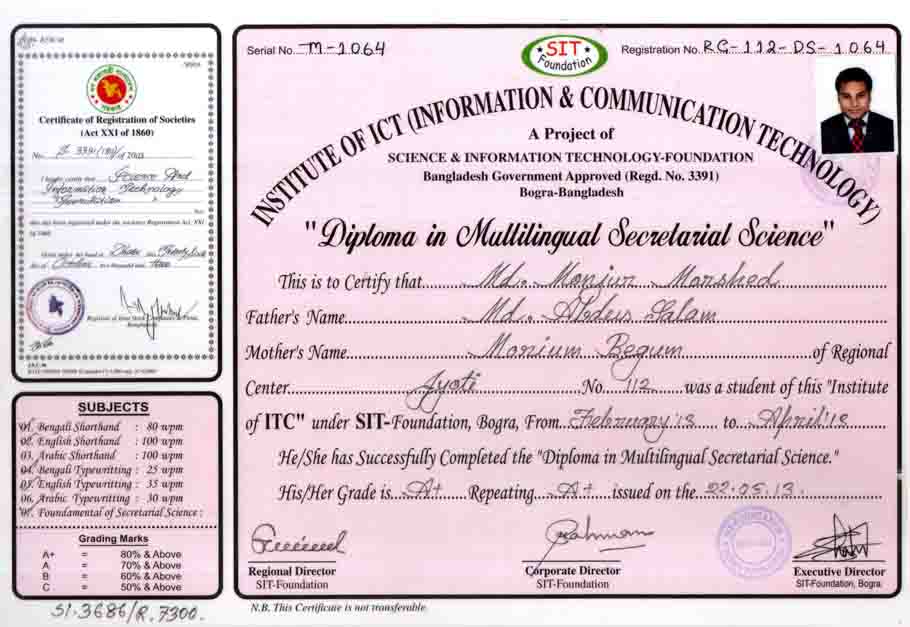 Certificate of Registration of Societies
(Act XXI of 1860)
No. S 3391(180)/of 2003
I hereby certify that Science And
Information Technology
"Foundation"
has this day been registered under the societies Registration Act. XXI
of 1860.
Given under my hand at Dhaka this Twenty Sixth
day of October two thousand and three
Registrar of Joint Stock Companies & Firms,
Bangladesh
SUBJECTS
01. Bengali Shorthand : 80 wpm
02. English Shorthand : 100 wpm
03. Arabic Shorthand : 100 wpm
04. Bengali Typewritting : 25 wpm
05. English Typewritting : 35 wpm
06. Arabic Typewritting : 30 wpm
07. Foundamental of Secretarial Science :
Grading Marks
A+ = 80% & Above
A = 70% & Above
B = 60% & Above
C = 50% & Above
SI.3686/R.7300.
Serial No. M-1064
SIT
Foundation
Registration No. RG-112-DS-1064
INSTITUTE OF ICT (INFORMATION & COMMUNICATION TECHNOLOGY)
A Project of
SCIENCE & INFORMATION TECHNOLOGY-FOUNDATION
Bangladesh Government Approved (Regd. No. 3391)
Bogra-Bangladesh
"Diploma in Multilingual Secretarial Science"
This is to Certify that Md. Monjur Morshed
Father's Name Md. Abdus Salam
Mother's Name Morium Begum of Regional
Center Jyoti No. 112 was a student of this "Institute
of ITC" under SIT-Foundation, Bogra, From February'13 to April'13
He/She has Successfully Completed the "Diploma in Multilingual Secretarial Science."
His/Her Grade is A+ Repeating A+ issued on the 22.05.13.
Regional Director
SIT-Foundation
Corporate Director
SIT-Foundation
Executive Director
SIT-Foundation, Bogra.
N.B. This Certificate is not transferable.